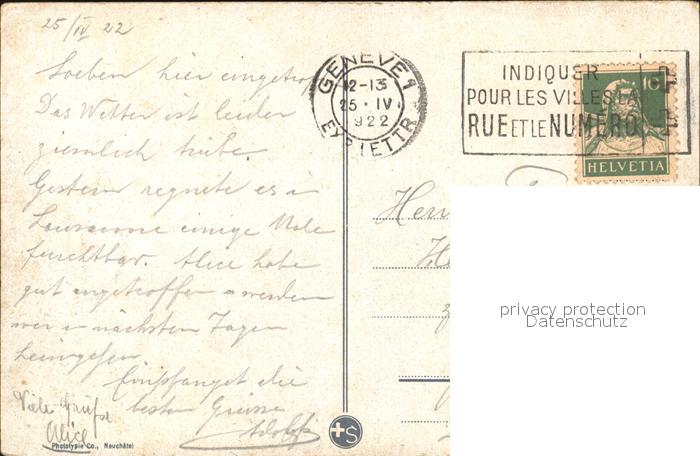 25/IV 22
Soeben hier eingetroff
Das Wetter ist leider
ziemlich trübe.
Gestern regnete es in
Lausanne einige Male
furchtbar. Alice habe
gut angetroffen u werden
wir in nächsten Tagen
heimgehen
Empfanget die
besten Grüsse
Adolf
Viele Grüsse
Alice
Phototypie Co., Neuchâtel
GENÈVE 1
12-13
25.IV.
1922
EXP. LETTR
INDIQUER
POUR LES VILLES LA
RUE ET LE NUMÉRO
10
HELVETIA
+S
Herr
privacy protection
Datenschutz